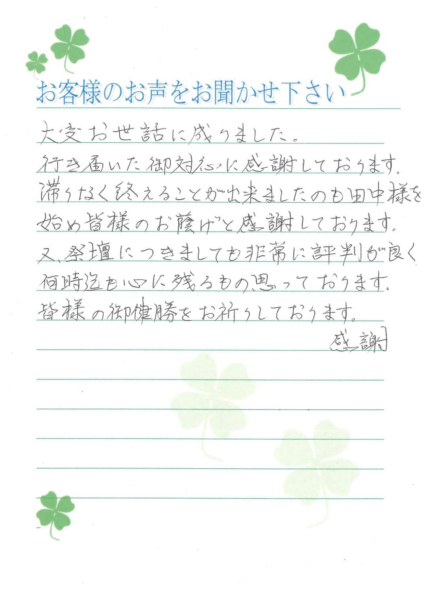 お客様のお声をお聞かせ下さい
大変お世話に成りました。
行き届いた御対応に感謝しております。
滞りなく終えることが出来ましたのも田中様を
始め皆様のお蔭げと感謝しております。
又、祭壇につきましても非常に評判が良く
何時迄も心に残るもの思っております。
皆様の御健勝をお祈りしております。
感謝